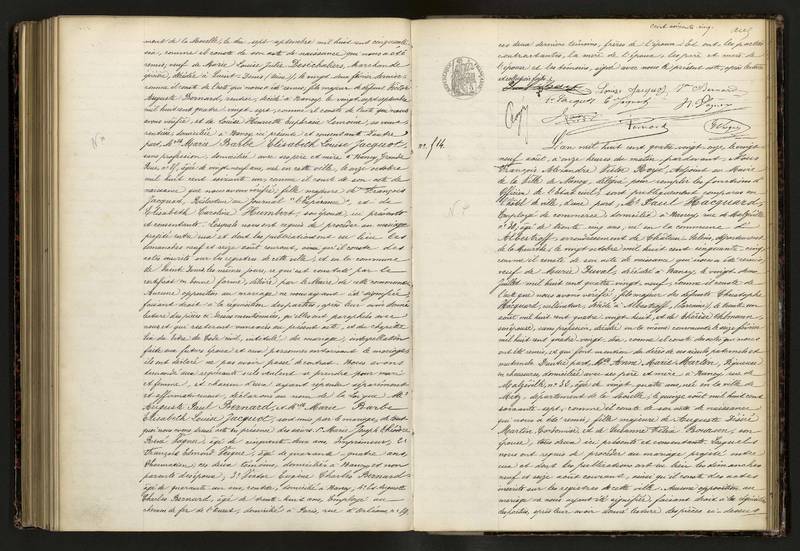 ment de la Moselle, le dix sept septembre mil huit cent cinquante
six, comme il conste de son acte de naissance qui nous a été
remis, veuf de Marie Louise Julie Marchande
décédée à Saint Denis (Seine), le vingt deux février dernier,
comme il conste de l'acte qui nous a été remis, fils majeur de défunt Victor
Auguste Bernard, rentier, décédé à Nancy le vingt sept septembre
mil huit cent quatre vingt sept, comme il conste de l'acte que nous
avons vérifié, et de Louise Henriette Euphrasie Lemoine, sa veuve
rentière, domiciliée à Nancy ici présente et consentante. D'autre
part, Melle Marie Barbe Elisabeth Louise Jacquot,
sans profession, domiciliée avec ses père et mère à Nancy, Grande
Rue, âgée de vingt neuf ans, née en cette ville, le onze octobre
mil huit cent soixante un, comme il conste de son acte de
naissance que nous avons vérifié, fille majeure de François
Jacquot, au Journal "l'Espérance", et de
Elisabeth Caroline Humbert, son épouse, ici présents
et consentants. Lesquels nous ont requis de procéder au mariage
projeté entre eux et dont les publications ont eu lieu les
dimanches neuf et seize août courant, ainsi qu'il conste des
actes inscrits sur les registres de cette ville, et en la commune
de Saint Denis les mêmes jours, ce qui est constaté par le
certificat en bonne forme, délivré par le Maire de cette commune.
Aucune opposition au mariage ne nous ayant été signifiée,
faisant droit à la réquisition des parties, après leur avoir donné
lecture des pièces ci-dessus mentionnées, qu'elles ont paraphées avec
nous et qui resteront annexées au présent acte, et du chapitre
six du titre du Code civil, intitulé du mariage, interpellation
faite aux futurs époux et aux personnes autorisant le mariage,
ils ont déclaré ne pas avoir passé de contrat. Nous avons
demandé aux requérants s'ils veulent se prendre pour mari
et femme, et chacun d'eux ayant répondu séparément
et affirmativement, déclarons au nom de la loi que Mr
Auguste Paul Bernard, et Melle Marie Barbe
Elisabeth Louise Jacquot, sont unis par le mariage, de tout
quoi nous avons dressé acte en présence des sieurs 1° Marie Joseph Théodore
René Vagner, âgé de cinquante deux ans, Imprimeur, 2°
François Edmond âgé de quarante quatre ans,
ces deux témoins, domiciliés à Nancy et non
parents des époux, 3° Victor Eugène Charles Bernard
âgé de quarante un ans, rentier, domicilié à Nancy, 4° et Auguste
Charles Bernard, âgé de trente huit ans, Employé au
chemin de fer de l'Ouest, domicilié à Paris, rue d'Orléans
cent soixante cinq.
ces deux derniers témoins, frères de l'époux. Et ont, les parties
contractantes, la mère de l'époux, les père et mère de
l'épouse et les témoins, signé avec nous le présent acte, après lecture
Louise Jacquot Vve Bernard
Jacquot E. Jacquot R. Vagner
Bernard
n° 14.
L'an mil huit cent quatre vingt onze, le vingt
neuf août, à onze heures du matin, pardevant Nous
François Alexandre Victor Royé, Adjoint au Maire
de la Ville de Nancy, délégué pour remplir les fonctions d'
Officier de l'Etat civil, sont publiquement comparus en
l'hôtel de ville, d'une part, Mr Paul Hacquard,
Employé de commerce, domicilié à Nancy, rue de Malzéville
n° 30, âgé de trente cinq ans, né en la commune d'
Albestroff, arrondissement de Château-Salins, département
de la Meurthe, le vingt octobre mil huit cent cinquante cinq,
comme il conste de son acte de naissance qui nous a été remis,
veuf de Marie décédée à Nancy le vingt deux
juillet mil huit cent quatre vingt neuf, comme il conste de
l'acte que nous avons vérifié, fils majeur de défunts Christophe
Hacquard, cultivateur, décédé à Albestroff, (Lorraine), le trente
août mil huit cent quatre vingt huit, et de Thérèse
son épouse, sans profession, décédée en la même commune le seize février
mil huit cent quatre vingt dix, comme il conste des actes qui nous
ont été remis, et qui font mention du décès de ses aïeuls paternels et
maternels. D'autre part, Melle Anne Marie Martin, Piqueuse
en chaussures, domiciliée avec ses père et mère à Nancy, rue de
Malzéville, n° 30, âgée de vingt quatre ans, née en la ville de
Metz, département de la Moselle, le quinze août mil huit cent
soixante sept, comme il conste de son acte de naissance
qui nous a été remis, fille majeure de Auguste Désiré
Martin, Cordonnier, et de son
épouse, tous deux ici présents et consentants. Lesquels
nous ont requis de procéder au mariage projeté entre
eux et dont les publications ont eu lieu les dimanches
neuf et seize août courant, ainsi qu'il conste des actes
inscrits sur les registres de cette ville. Aucune opposition au
mariage ne nous ayant été signifiée, faisant droit à la réquisition
des parties, après leur avoir donné lecture des pièces ci-dessus